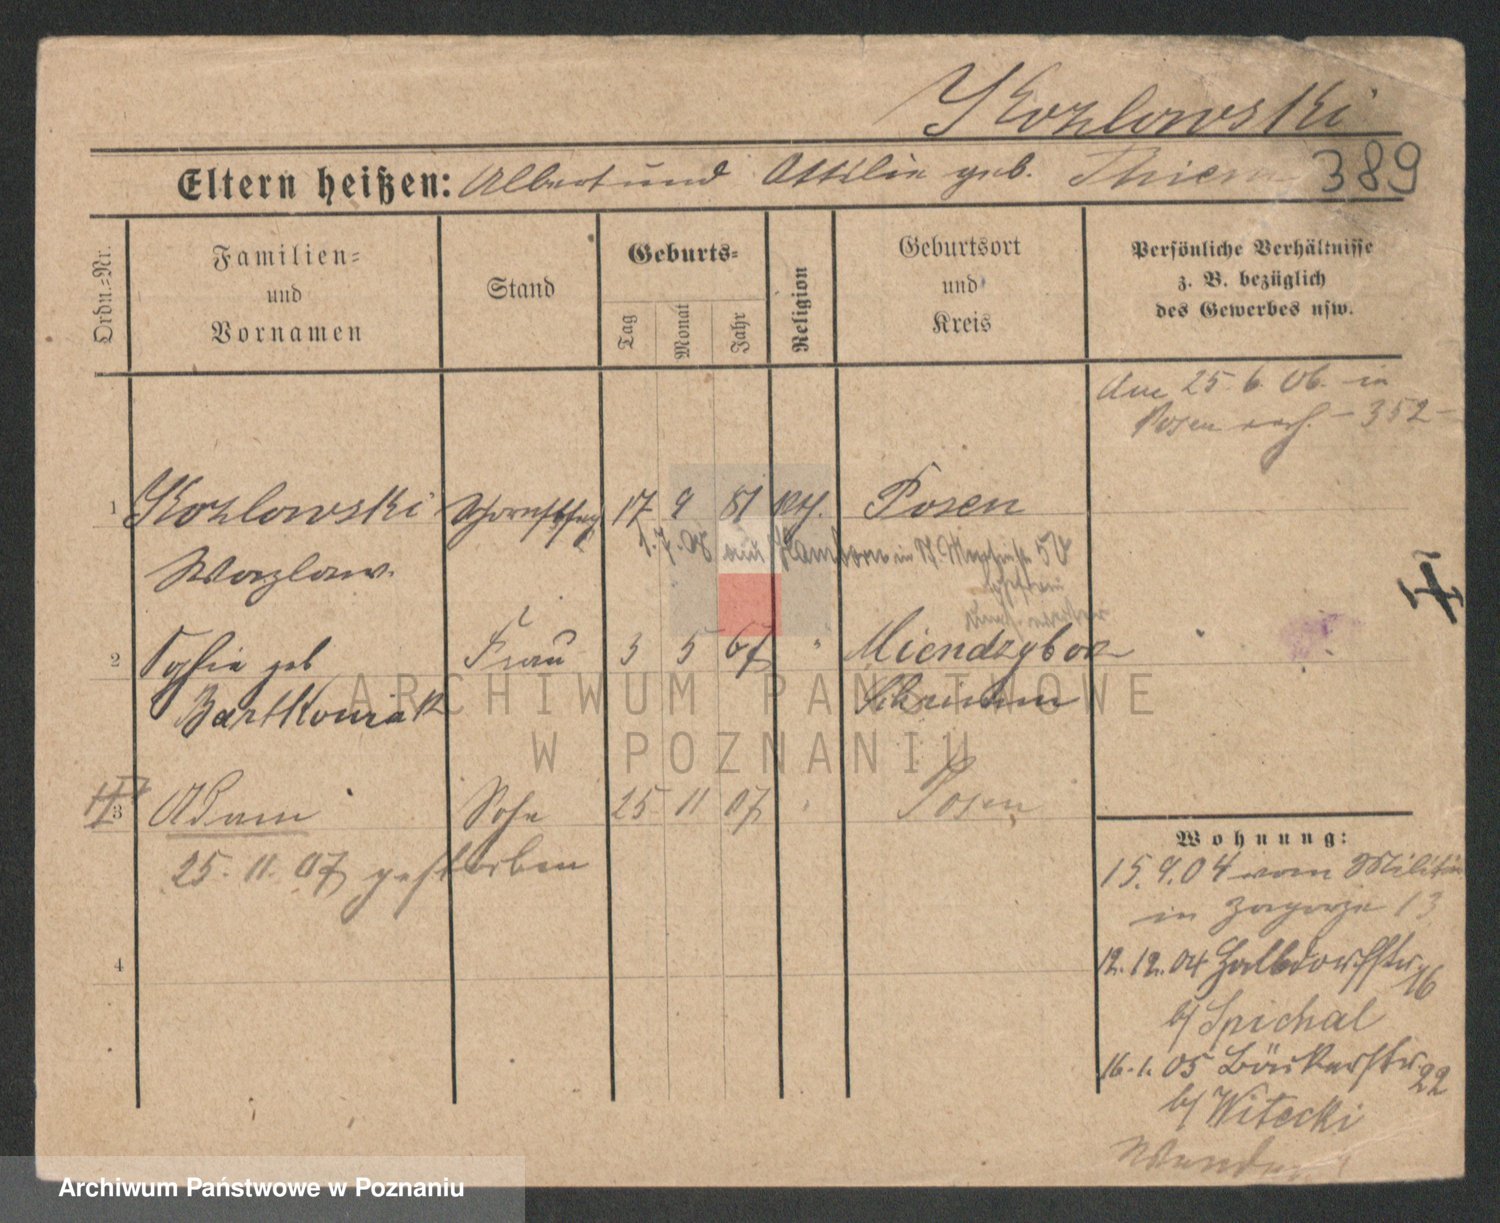 Kozlowski
Eltern heißen: Albert und Ottilie geb. Thiem 389
Ordn.=Nr.
Familien=
und
Vornamen
Stand
Geburts=
Tag
Monat
Jahr
Religion
Geburtsort
und
Kreis
Persönliche Verhältnisse
z. B. bezüglich
des Gewerbes usw.
Am 25. 6. 06. in
Posen verh. - 352 -
1 Kozlowski 17 9 81 kth. Posen
1. 7. 08 aus in 50
Wazlaw.
2 Sophie geb Frau 3 5 67 " Miendzybor
Bartkowiak Schrimm
3 Adam Sohn 25 11 07 " Posen
25. 11. 07 gestorben
4
Wohnung:
15. 9. 04 vom Militär
in Zagorze 13
12. 12. 04 Halbdorfstr. 16
b/ Spichal
16. 1. 05 Bäckerstr. 22
b/ Witecki
Wenden
ARCHIWUM PAŃSTWOWE
W POZNANIU
Archiwum Państwowe w Poznaniu